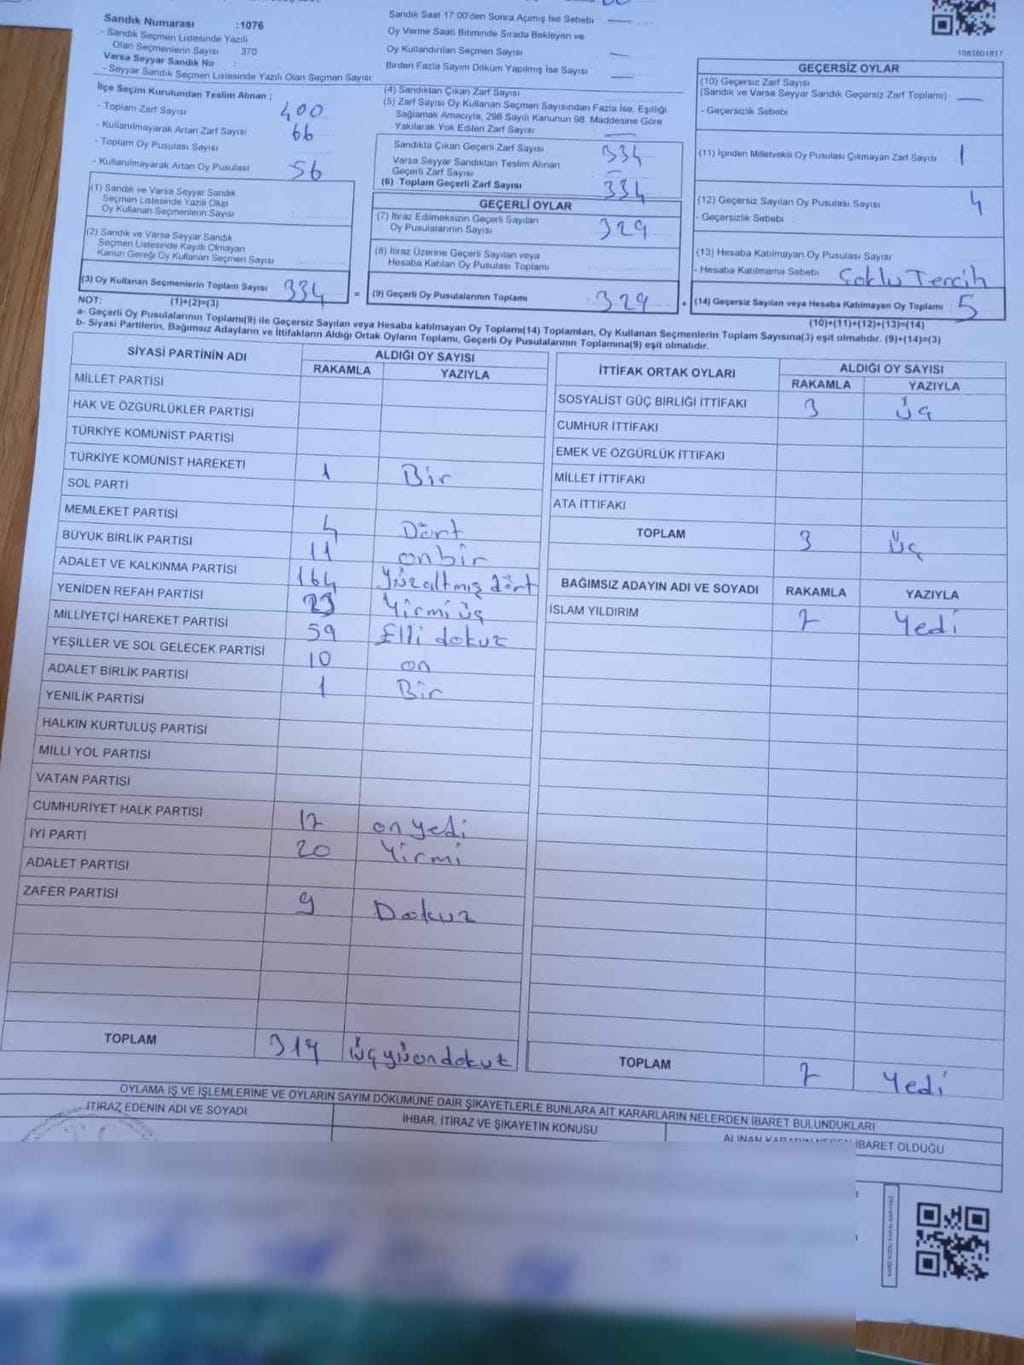 Sandık Numarası :1076
- Sandık Seçmen Listesinde Yazılı
Olan Seçmenlerin Sayısı 370
Varsa Seyyar Sandık No :
- Seyyar Sandık Seçmen Listesinde Yazılı Olan Seçmen Sayısı
İlçe Seçim Kurulundan Teslim Alınan ;
- Toplam Zarf Sayısı 400
- Kullanılmayarak Artan Zarf Sayısı 66
- Toplam Oy Pusulası Sayısı
- Kullanılmayarak Artan Oy Pusulası 56
(1) Sandık ve Varsa Seyyar Sandık
Seçmen Listesinde Yazılı Olup
Oy Kullanan Seçmenlerin Sayısı
(2) Sandık ve Varsa Seyyar Sandık
Seçmen Listesinde Kayıtlı Olmayan
Kanun Gereği Oy Kullanan Seçmen Sayısı
(3) Oy Kullanan Seçmenlerin Toplam Sayısı 334
(1)+(2)=(3)
Sandık Saat 17:00'den Sonra Açımış İse Sebebi
Oy Verme Saati Bitiminde Sırada Bekleyen ve
Oy Kullandırılan Seçmen Sayısı
Birden Fazla Sayım Döküm Yapılmış İse Sayısı
(4) Sandıktan Çıkan Zarf Sayısı
(5) Zarf Sayısı Oy Kullanan Seçmen Sayısından Fazla İse, Eşitliği
Sağlamak Amacıyla, 298 Sayılı Kanunun 98. Maddesine Göre
Yakılarak Yok Edilen Zarf Sayısı
Sandıkta Çıkan Geçerli Zarf Sayısı 334
Varsa Seyyar Sandıktan Teslim Alınan
Geçerli Zarf Sayısı
(6) Toplam Geçerli Zarf Sayısı 334
GEÇERLİ OYLAR
(7) İtiraz Edilmeksizin Geçerli Sayılan
Oy Pusulalarının Sayısı 329
(8) İtiraz Üzerine Geçerli Sayılan veya
Hesaba Katılan Oy Pusulası Toplamı
= (9) Geçerli Oy Pusulalarının Toplamı 329 +
1081601817
GEÇERSİZ OYLAR
(10) Geçersiz Zarf Sayısı
(Sandık ve Varsa Seyyar Sandık Geçersiz Zarf Toplamı)
- Geçersizlik Sebebi
(11) İçinden Milletvekili Oy Pusulası Çıkmayan Zarf Sayısı 1
(12) Geçersiz Sayılan Oy Pusulası Sayısı 4
- Geçersizlik Sebebi
(13) Hesaba Katılmayan Oy Pusulası Sayısı
- Hesaba Katılmama Sebebi Çoklu Tercih
(14) Geçersiz Sayılan veya Hesaba Katılmayan Oy Toplamı 5
(10)+(11)+(12)+(13)=(14)
NOT:
a- Geçerli Oy Pusulalarının Toplamı(9) ile Geçersiz Sayılan veya Hesaba katılmayan Oy Toplamı(14) Toplamları, Oy Kullanan Seçmenlerin Toplam Sayısına(3) eşit olmalıdır. (9)+(14)=(3)
b- Siyasi Partilerin, Bağımsız Adayların ve İttifakların Aldığı Ortak Oyların Toplamı, Geçerli Oy Pusulalarının Toplamına(9) eşit olmalıdır.
SİYASİ PARTİNİN ADI ALDIĞI OY SAYISI
RAKAMLA YAZIYLA
MİLLET PARTİSİ
HAK VE ÖZGÜRLÜKLER PARTİSİ
TÜRKİYE KOMÜNİST PARTİSİ
TÜRKİYE KOMÜNİST HAREKETİ 1 Bir
SOL PARTİ
MEMLEKET PARTİSİ 4 Dört
BÜYÜK BİRLİK PARTİSİ 11 onbir
ADALET VE KALKINMA PARTİSİ 164 Yüzaltmış dört
YENİDEN REFAH PARTİSİ 23 Yirmi üç
MİLLİYETÇİ HAREKET PARTİSİ 59 Elli dokuz
YEŞİLLER VE SOL GELECEK PARTİSİ 10 on
ADALET BİRLİK PARTİSİ 1 Bir
YENİLİK PARTİSİ
HALKIN KURTULUŞ PARTİSİ
MİLLİ YOL PARTİSİ
VATAN PARTİSİ
CUMHURİYET HALK PARTİSİ 17 on yedi
İYİ PARTİ 20 Yirmi
ADALET PARTİSİ
ZAFER PARTİSİ 9 Dokuz
TOPLAM 319 üçyüzondokuz
İTTİFAK ORTAK OYLARI ALDIĞI OY SAYISI
RAKAMLA YAZIYLA
SOSYALİST GÜÇ BİRLİĞİ İTTİFAKI 3 üç
CUMHUR İTTİFAKI
EMEK VE ÖZGÜRLÜK İTTİFAKI
MİLLET İTTİFAKI
ATA İTTİFAKI
TOPLAM 3 üç
BAĞIMSIZ ADAYIN ADI VE SOYADI RAKAMLA YAZIYLA
İSLAM YILDIRIM 7 Yedi
TOPLAM 7 Yedi
OYLAMA İŞ VE İŞLEMLERİNE VE OYLARIN SAYIM DÖKÜMÜNE DAİR ŞİKAYETLERLE BUNLARA AİT KARARLARIN NELERDEN İBARET BULUNDUKLARI
İTİRAZ EDENİN ADI VE SOYADI
İHBAR, İTİRAZ VE ŞİKAYETİN KONUSU
ALINAN KARARIN NEDEN İBARET OLDUĞU